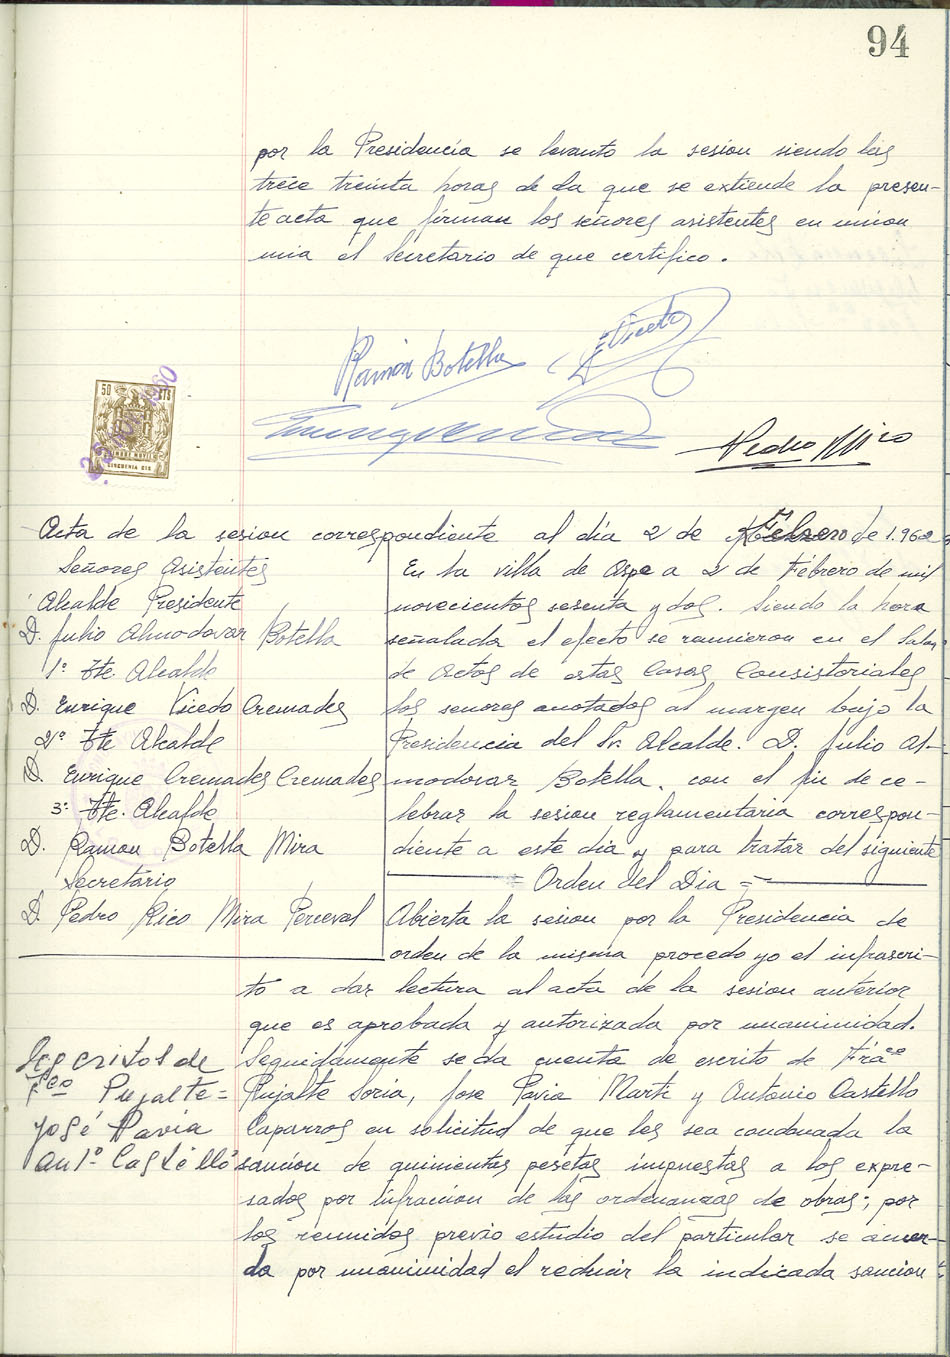 94
por la Presidencia se levanto la sesion siendo las
trece treinta horas de la que se extiende la presen-
te acta que firman los señores asistentes en union
mia el Secretario de que certifico.
Ramón Botella
E Vicedo
Pedro Rico
50 CTS
TIMBRE MOVIL
CINCUENTA CTS
Acta de la sesion correspondiente al día 2 de Febrero de 1.962
Señores Asistentes
Alcalde Presidente
D. Julio Almodovar Botella
1º Tte Alcalde
D. Enrique Vicedo Cremades
2º Tte Alcalde
D. Enrique Cremades Cremades
3º Tte. Alcalde
D. Ramon Botella Mira
Secretario
D. Pedro Rico Mira Perceval
En la villa de Aspe a 2 de Febrero de mil
novecientos sesenta y dos. Siendo la hora
señalada el efecto se reunieron en el Salon
de Actos de estas Casas Consistoriales
los señores anotados al margen bajo la
Presidencia del Sr. Alcalde. D. Julio Al-
modovar Botella. con el fin de ce-
lebrar la sesion reglamentaria correspon-
diente a este día y para tratar del siguiente
Orden del Dia
Abierta la sesion por la Presidencia de
orden de la misma procedo yo el infrascri-
to a dar lectura al acta de la sesion anterior
que es aprobada y autorizada por unanimidad.
escritos de
Fco Pujalte=
José Pavia
Antº Castelló
Seguidamente se da cuenta de escrito de Fraco
Pujalte Soria, Jose Pavia Marti y Antonio Castello
Caparros en solicitud de que les sea condonada la
sancion de quinientas pesetas impuestas a los expre-
sados por infracion de las ordenanzas de obras; por
los reunidos previo estudio del particular se acuer-
da por unanimidad el reducir la indicada sancion